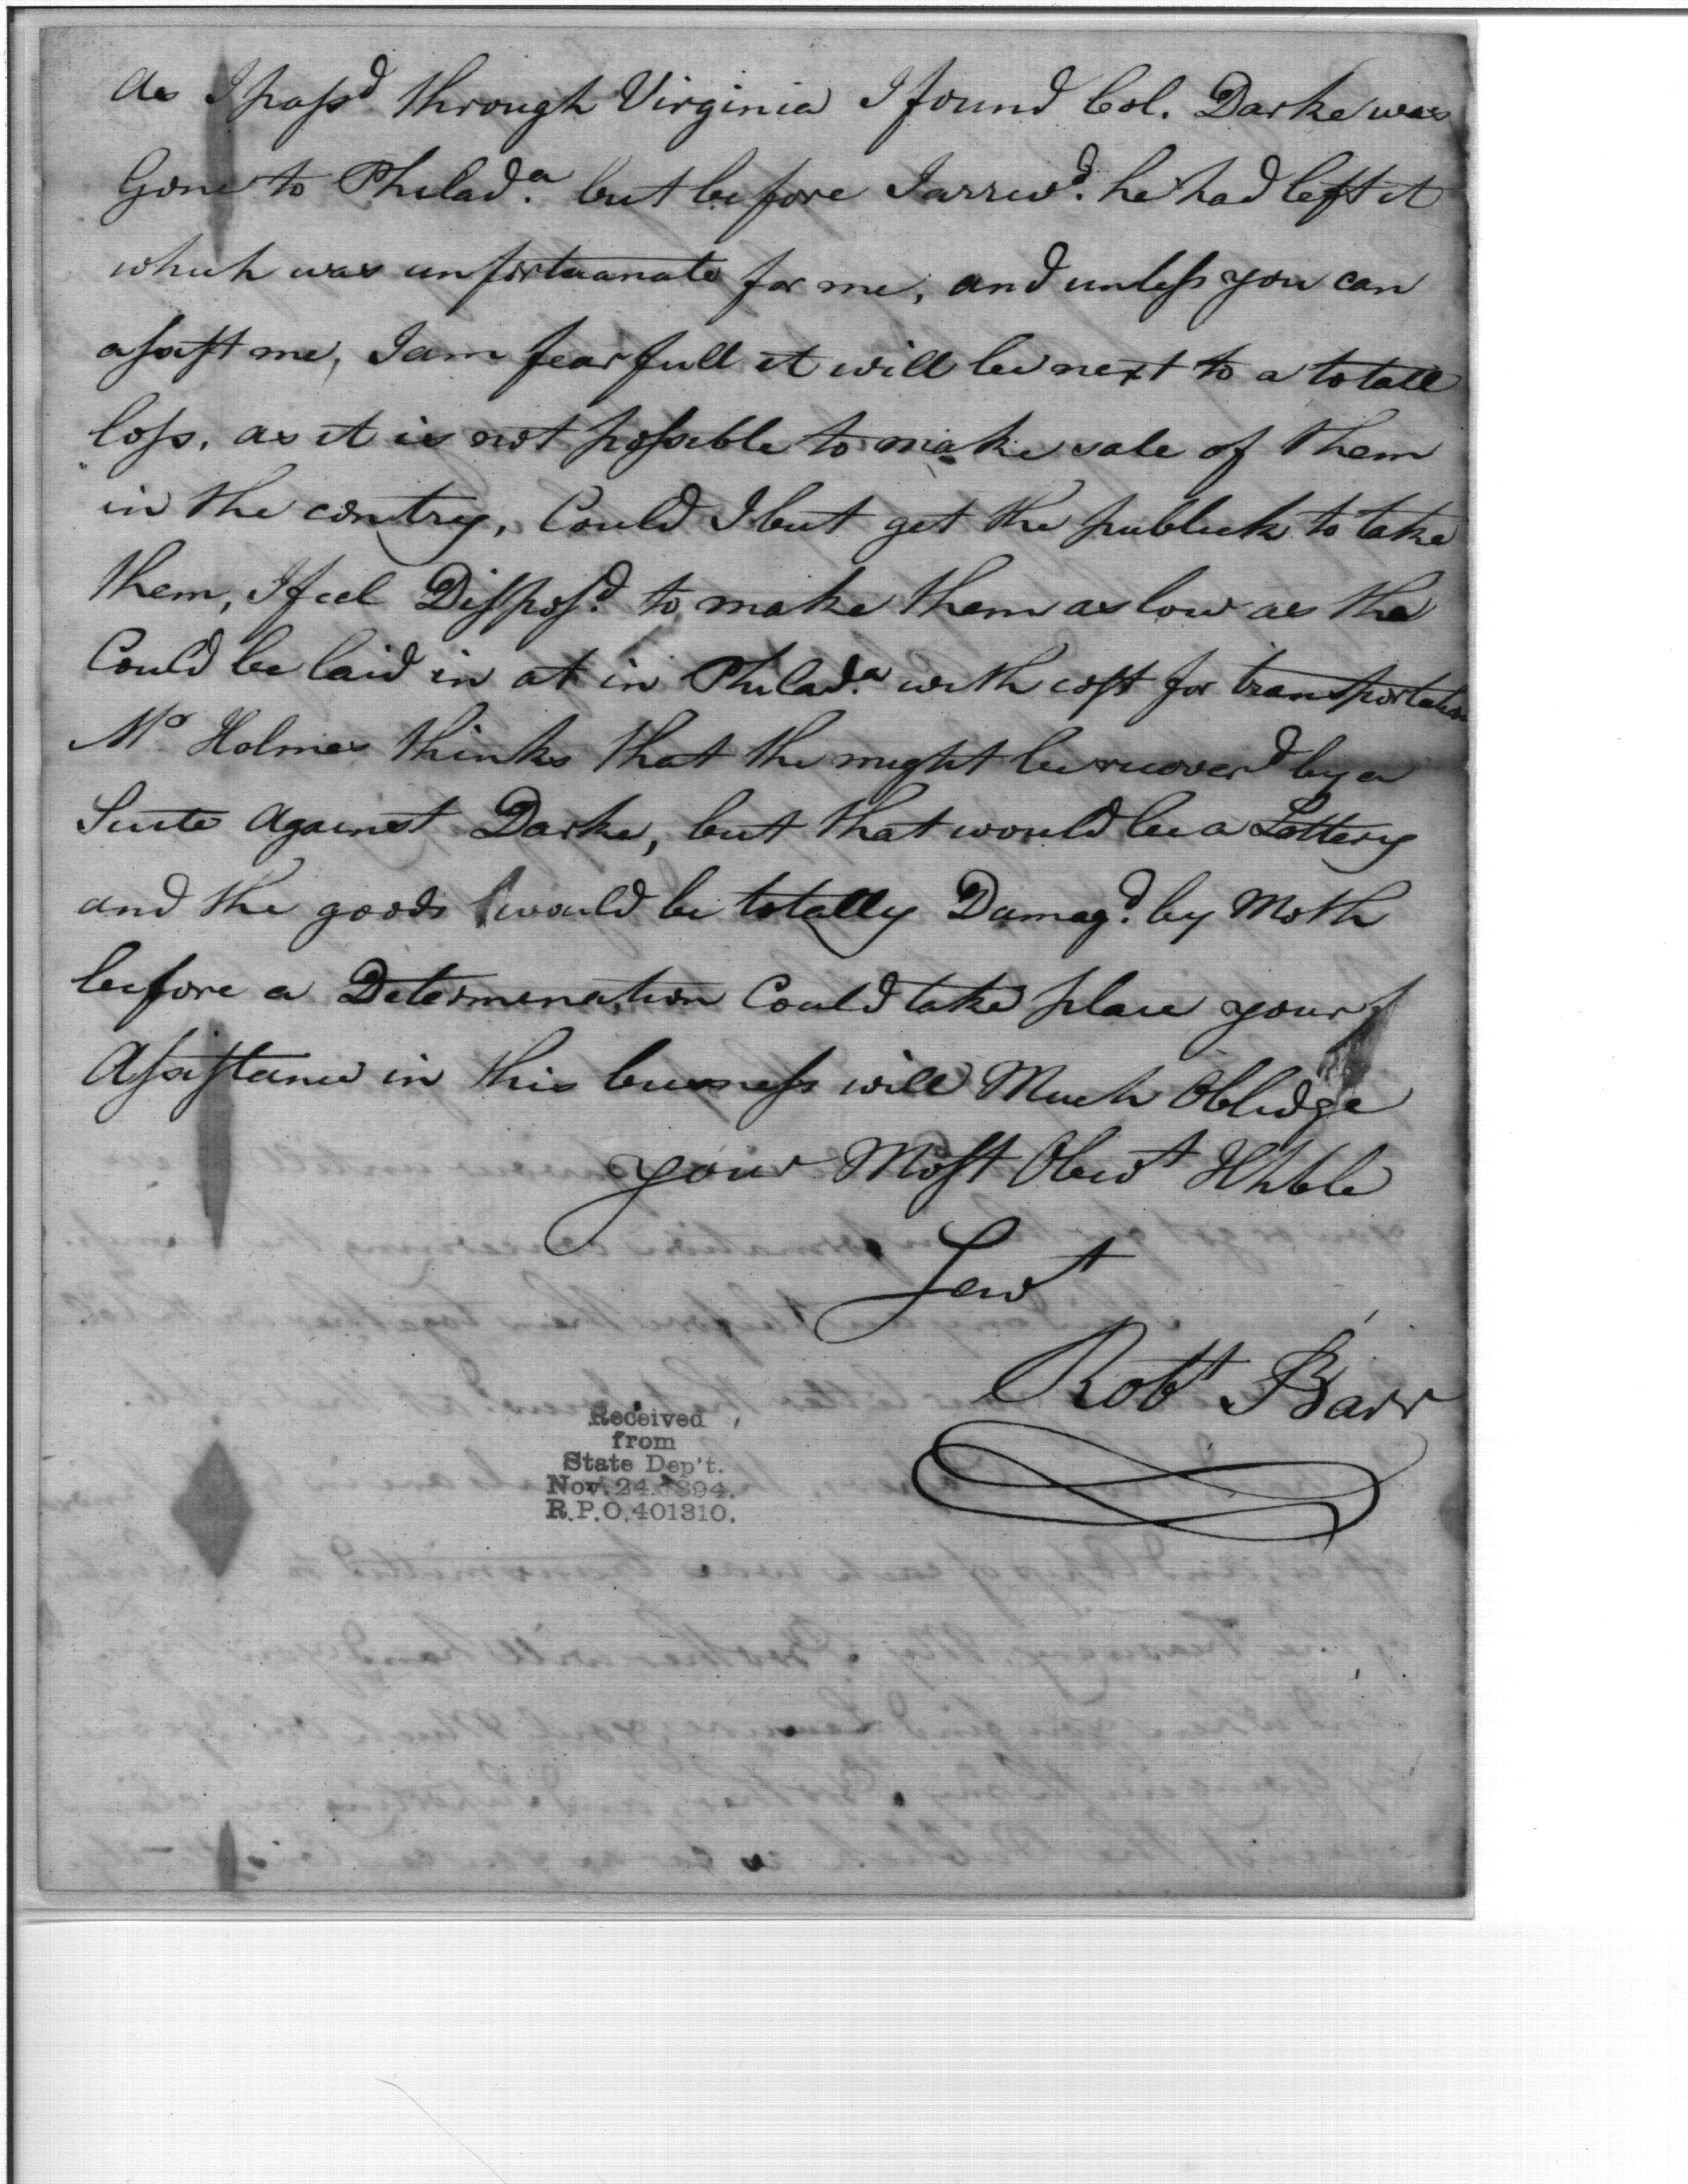 As I pass'd through Virginia I found Col. Darke was
Gone to Philad.a but before I arriv'd. he had left it
which was unfortuanate for me, and unless you can
assist me, I am fearfull it will be next to a totall
loss, as it is not possible to make sale of them
in the contry, Could I but get the publick to take
them, I feel Disspos'd to make them as low as the
Could be laid in at in Philad.a with cost for transportation
Mr Holmes thinks that the might be recover'd by a
Suite Against Darke, but that would be a Lottery
and the goods would be totally Damag'd. by Moth
before a Determination Could take place your
Assistance in this business will Much Oblidge
your Most Obed't Hhble
Serv't
Rob't Barr
Received
from
State Dep't.
Nov. 24. 1894.
R.P.O. 401310.